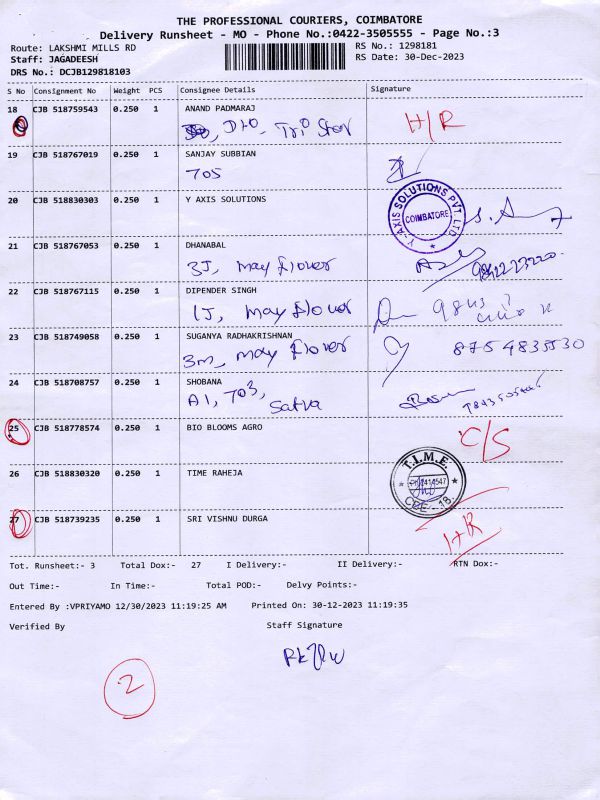 THE PROFESSIONAL COURIERS, COIMBATORE
Delivery Runsheet - MO - Phone No.:0422-3505555 - Page No.:3
Route: LAKSHMI MILLS RD
RS No.: 1298181
Staff: JAGADEESH
RS Date: 30-Dec-2023
DRS No.: DCJB129818103
S No Consignment No Weight PCS Consignee Details Signature
18 CJB 518759543 0.250 1 ANAND PADMARAJ
H/R
19 CJB 518767019 0.250 1 SANJAY SUBBIAN
705
20 CJB 518830303 0.250 1 Y AXIS SOLUTIONS
Y-AXIS SOLUTIONS PVT. LTD. COIMBATORE
21 CJB 518767053 0.250 1 DHANABAL
3J, may flover
22 CJB 518767115 0.250 1 DIPENDER SINGH
1J, may flover
23 CJB 518749058 0.250 1 SUGANYA RADHAKRISHNAN
3m, may flover
8754835530
24 CJB 518708757 0.250 1 SHOBANA
A1, 703,
Satva
25 CJB 518778574 0.250 1 BIO BLOOMS AGRO
C/S
26 CJB 518830320 0.250 1 TIME RAHEJA
T.I.M.E. CBE - 18.
27 CJB 518739235 0.250 1 SRI VISHNU DURGA
H/R
Tot. Runsheet:- 3 Total Dox:- 27 I Delivery:- II Delivery:- RTN Dox:-
Out Time:- In Time:- Total POD:- Delvy Points:-
Entered By :VPRIYAMO 12/30/2023 11:19:25 AM Printed On: 30-12-2023 11:19:35
Verified By Staff Signature
2